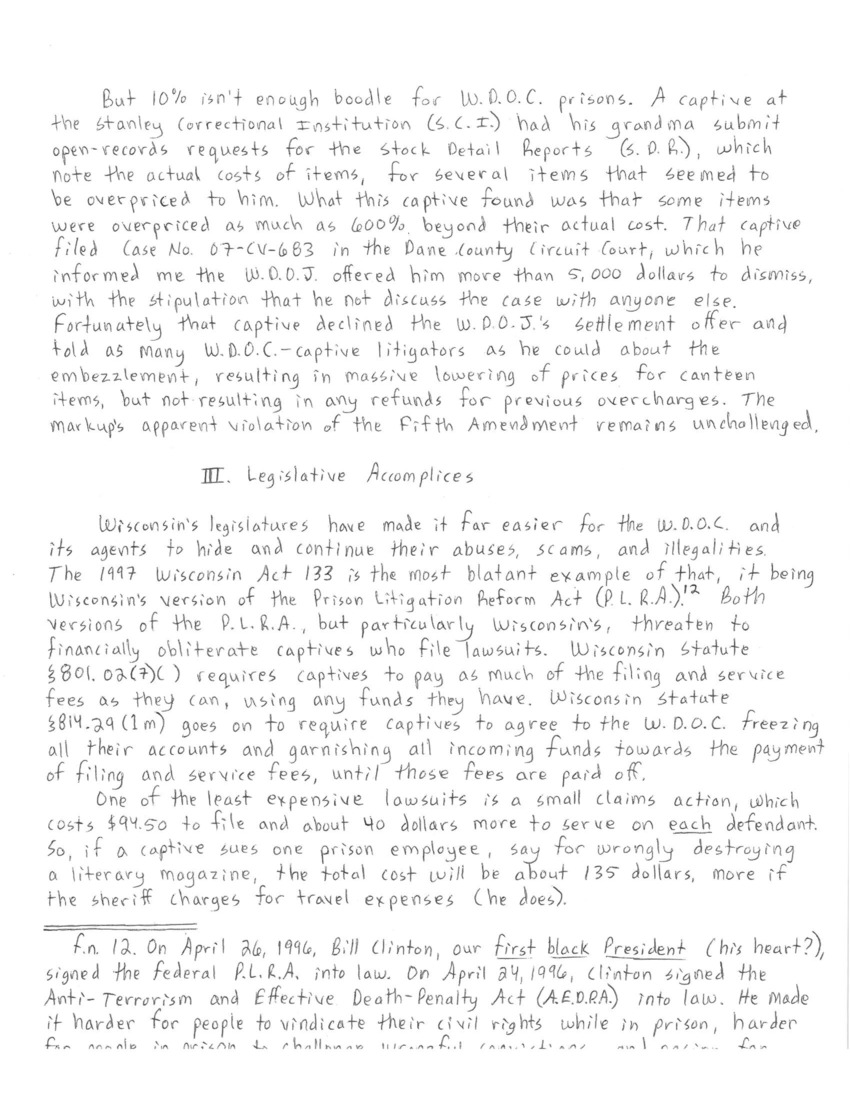 But 10% isn't enough boodle for W.D.O.C. prisons. A captive at
the Stanley Correctional Institution (S.C.I.) had his grandma submit
open-records requests for the Stock Detail Reports (S.D.R.), which
note the actual costs of items, for several items that seemed to
be overpriced to him. What this captive found was that some items
were overpriced as much as 600% beyond their actual cost. That captive
filed Case No. 07-CV-683 in the Dane County Circuit Court, which he
informed me the W.D.O.J. offered him more than 5,000 dollars to dismiss,
with the stipulation that he not discuss the case with anyone else.
Fortunately that captive declined the W.D.O.J.'s settlement offer and
told as many W.D.O.C.-captive litigators as he could about the
embezzlement, resulting in massive lowering of prices for canteen
items, but not resulting in any refunds for previous overcharges. The
markup's apparent violation of the Fifth Amendment remains unchallenged.
III. Legislative Accomplices
Wisconsin's legislatures have made it far easier for the W.D.O.C. and
its agents to hide and continue their abuses, scams, and illegalities.
The 1997 Wisconsin Act 133 is the most blatant example of that, it being
Wisconsin's version of the Prison Litigation Reform Act (P.L.R.A.).12 Both
versions of the P.L.R.A., but particularly Wisconsin's, threaten to
financially obliterate captives who file lawsuits. Wisconsin Statute
§801.02(7)( ) requires captives to pay as much of the filing and service
fees as they can, using any funds they have. Wisconsin Statute
§814.29(1m) goes on to require captives to agree to the W.D.O.C. freezing
all their accounts and garnishing all incoming funds towards the payment
of filing and service fees, until those fees are paid off.
One of the least expensive lawsuits is a small claims action, which
costs $94.50 to file and about 40 dollars more to serve on each defendant.
So, if a captive sues one prison employee, say for wrongly destroying
a literary magazine, the total cost will be about 135 dollars, more if
the sheriff charges for travel expenses (he does).
f.n. 12. On April 26, 1996, Bill Clinton, our first black President (his heart?),
signed the federal P.L.R.A. into law. On April 24, 1996, Clinton signed the
Anti-Terrorism and Effective Death-Penalty Act (A.E.D.P.A.) into law. He made
it harder for people to vindicate their civil rights while in prison, harder
for people in prison to challenge wrongful convictions, and